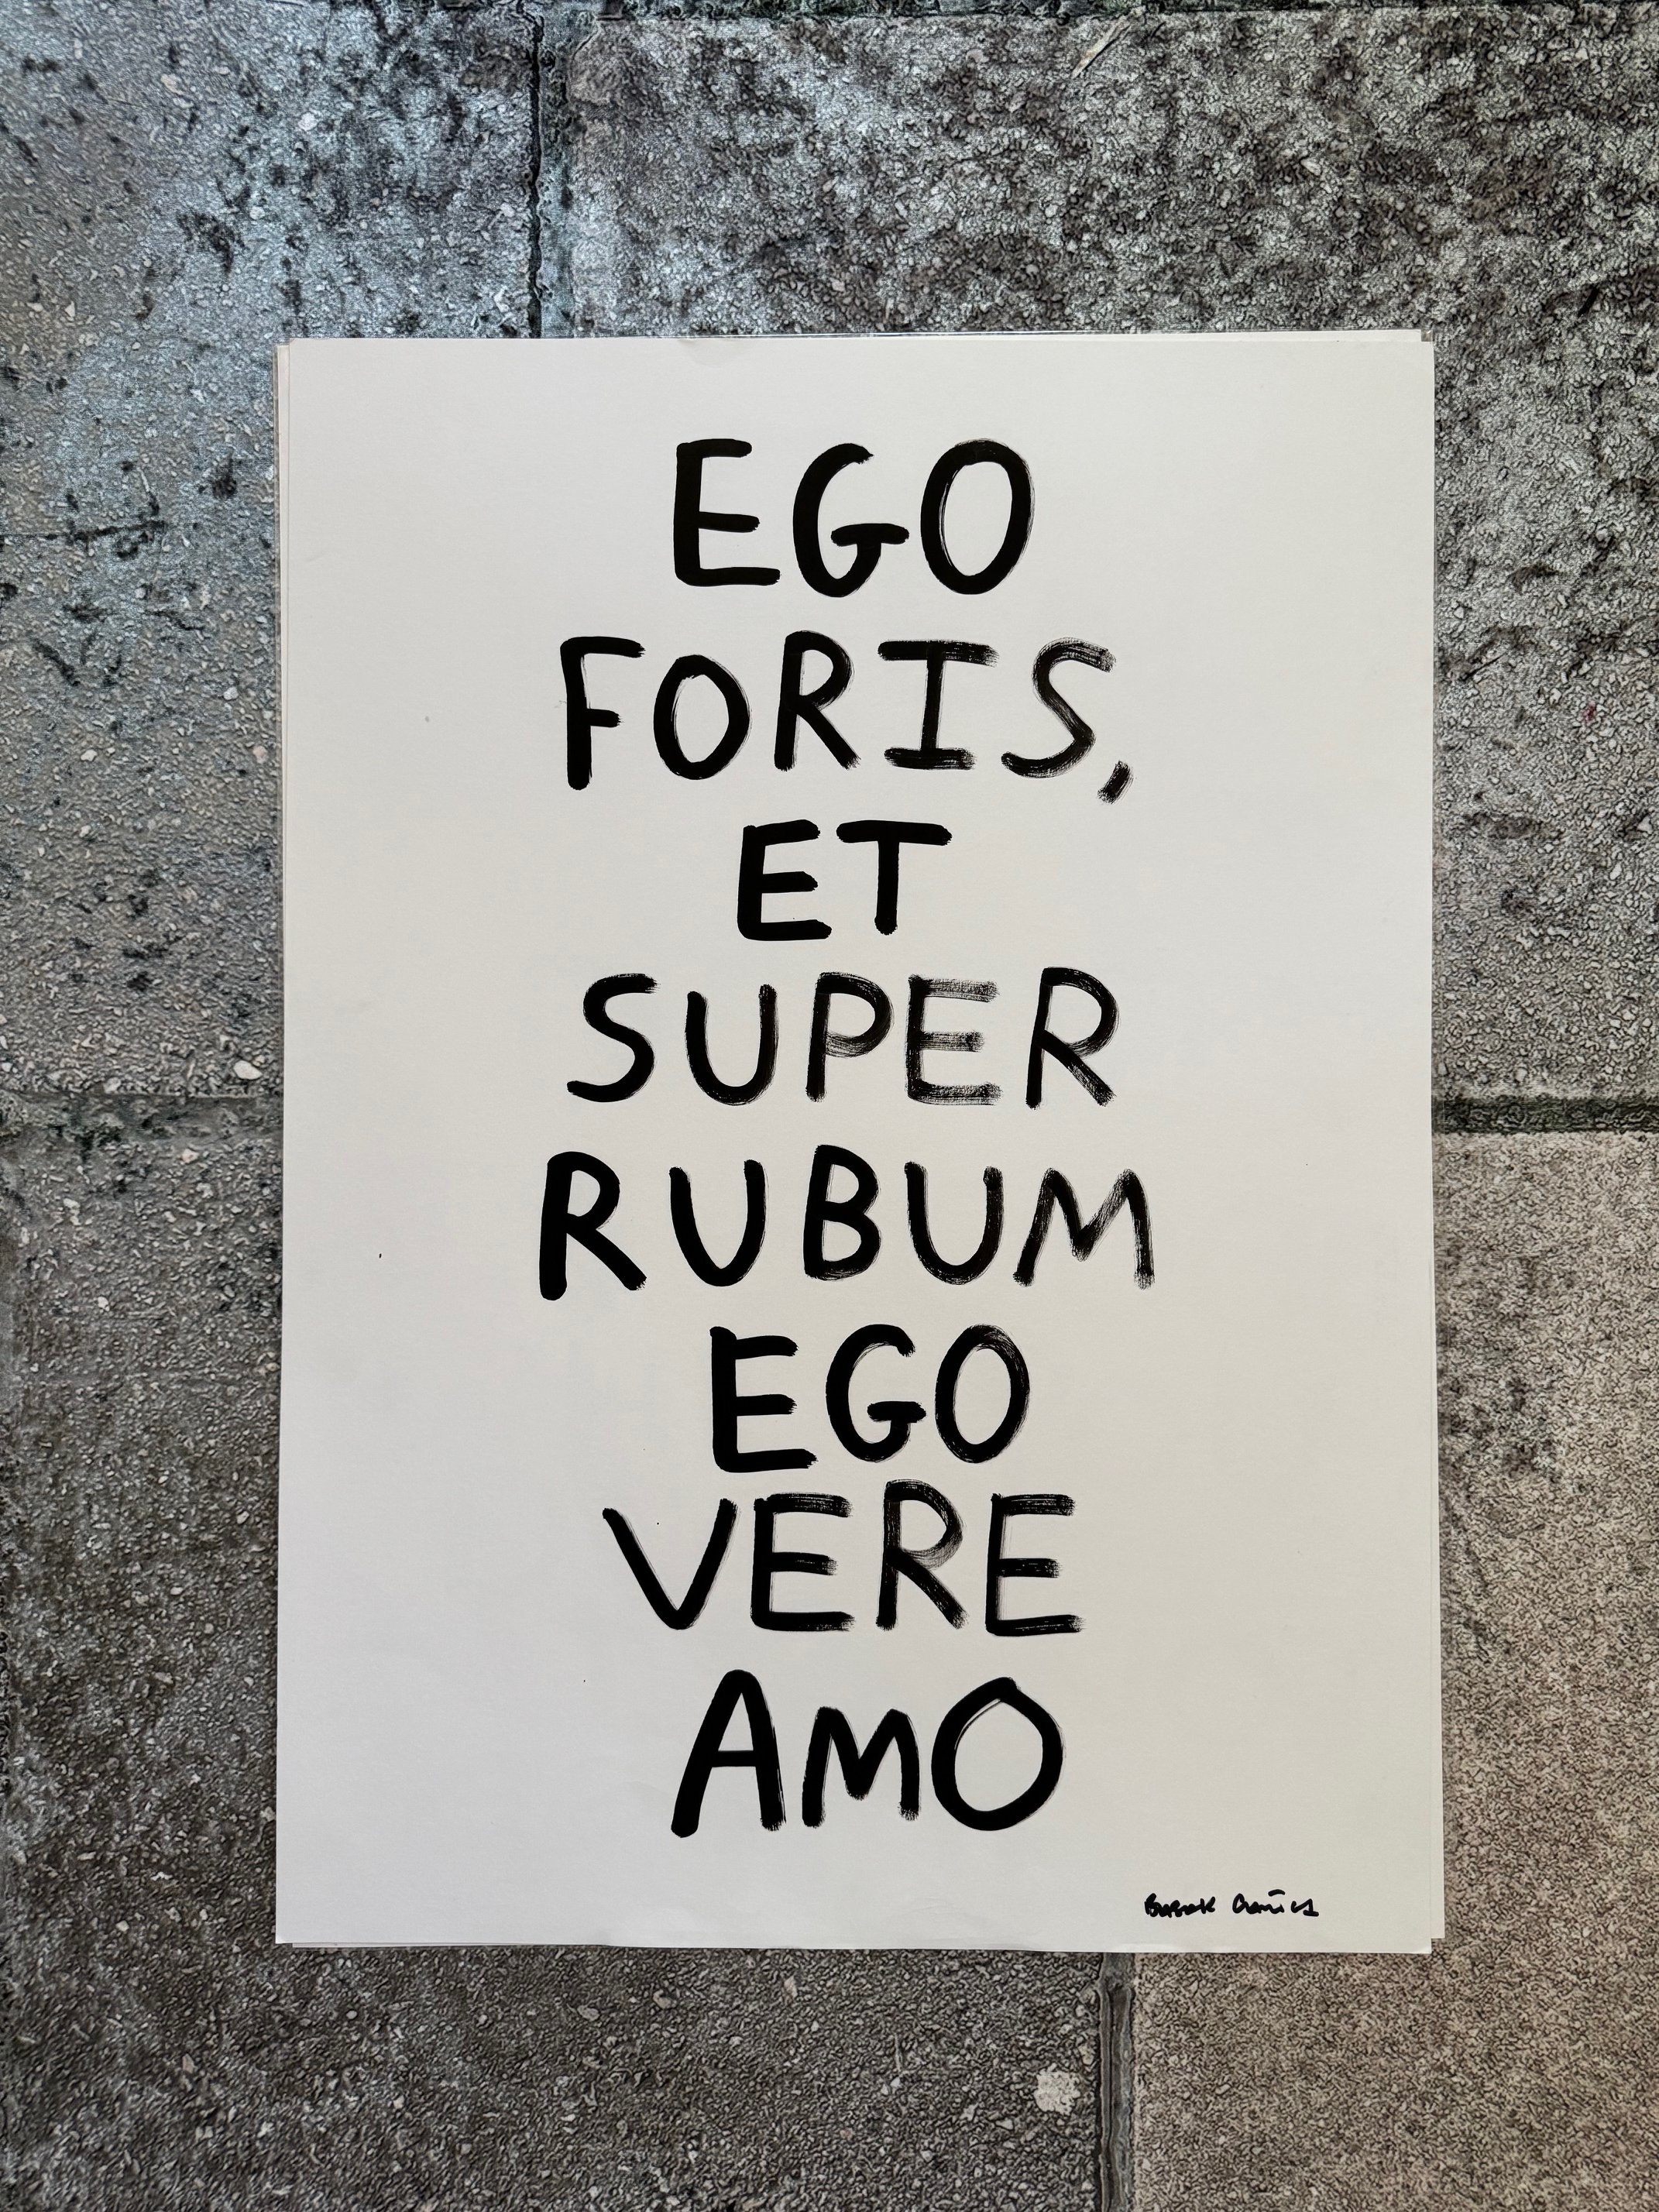 EGO
FORIS,
ET
SUPER
RUBUM
EGO
VERE
AMO